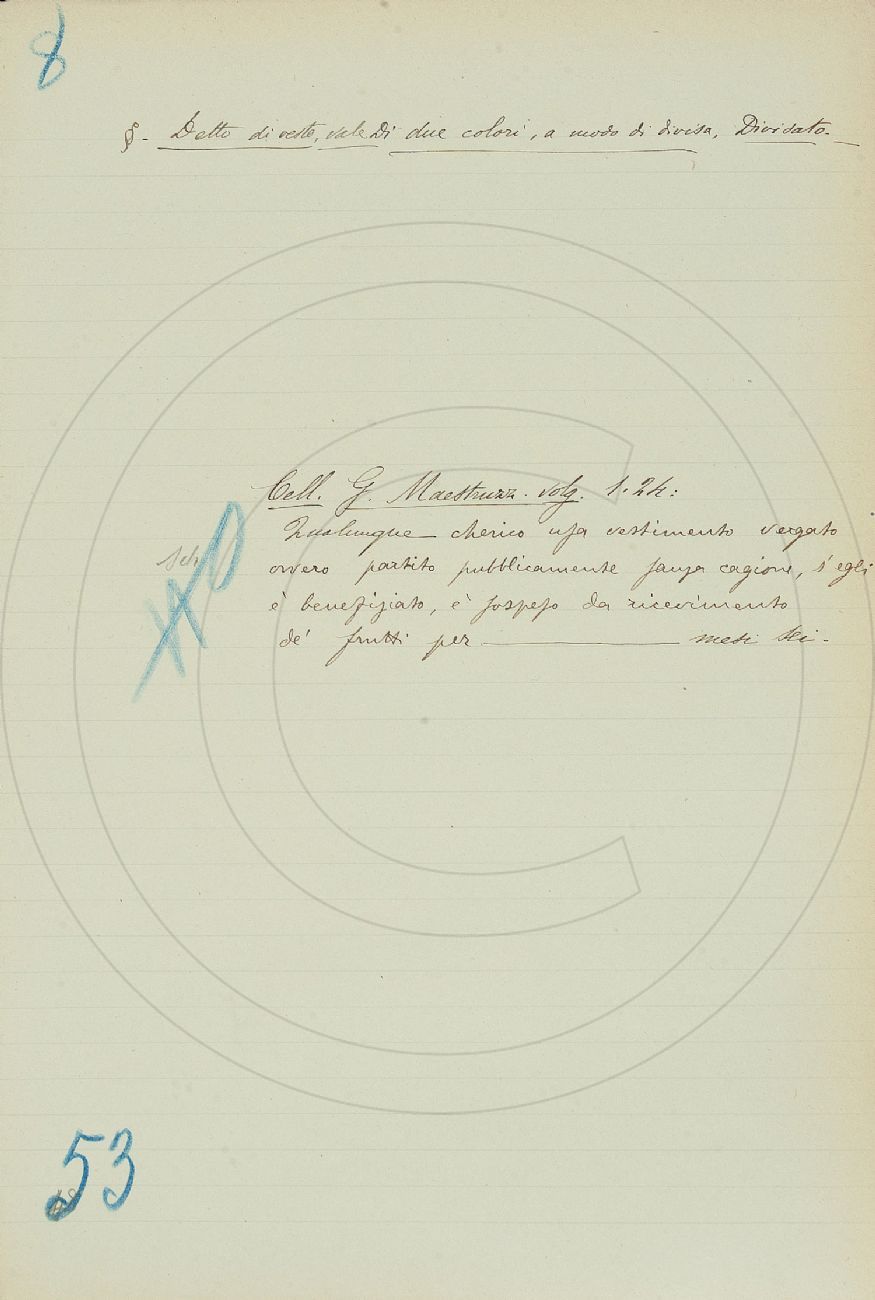 8
§. Detto di veste, vale Di due colori, a modo di divisa, Divisato. —
Cell. G. Maestruzz. volg. 1. 24:
Qualunque cherico usa vestimento vergato
ovvero partito pubblicamente sanza cagione, s'egli
è benefiziato, è sospeso da ricevimento
de' frutti per ——— mesi sei.
53